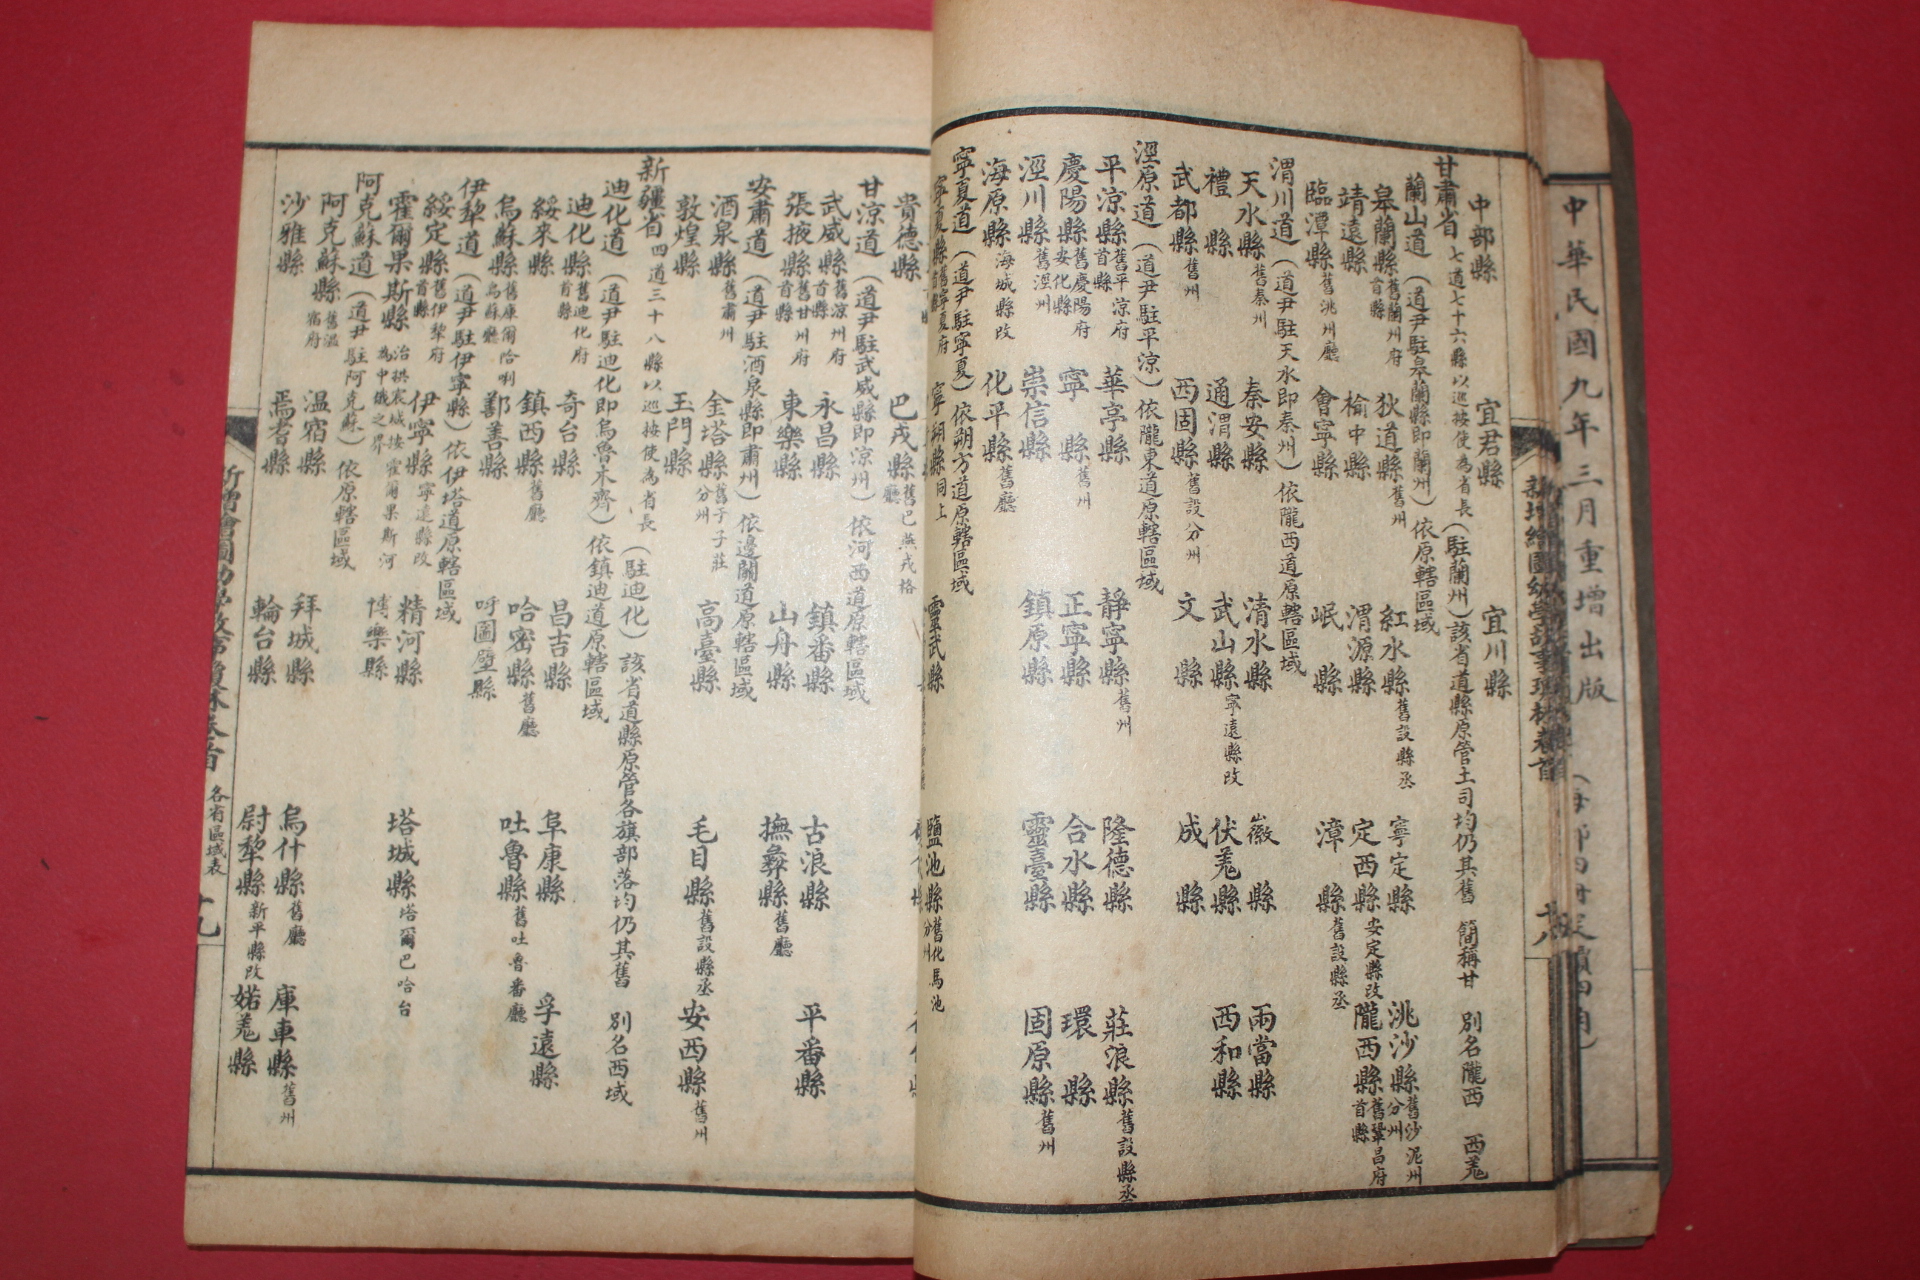 中華民國九年三月重增出版
中部縣 宜君縣 宜川縣
甘肅省 七道七十六縣以巡按使為省長（駐蘭州）該省道縣原管土司均仍其舊 簡稱甘 別名隴西 西羌
蘭山道（道尹駐皋蘭縣即蘭州）依原轄區域
皋蘭縣舊蘭州府首縣 狄道縣舊州 紅水縣舊設縣丞 寧定縣 洮沙縣舊沙泥州分州
靖遠縣 榆中縣 渭源縣 定西縣安定縣改 隴西縣舊鞏昌府首縣
臨潭縣舊洮州廳 會寧縣 岷縣 漳縣舊設縣丞
渭川道（道尹駐天水即秦州）依隴西道原轄區域
天水縣舊秦州 秦安縣 清水縣 徽縣 兩當縣
禮縣 通渭縣 武山縣寧遠縣改 伏羌縣 西和縣
武都縣舊州 西固縣舊設分州 文縣 成縣
涇原道（道尹駐平涼）依隴東道原轄區域
平涼縣舊平涼府首縣 華亭縣 靜寧縣舊州 隆德縣 莊浪縣舊設縣丞
慶陽縣舊慶陽府安化縣 寧縣舊州 正寧縣 合水縣 環縣
涇川縣舊涇州 崇信縣 鎮原縣 靈臺縣 固原縣舊州
海原縣海城縣改 化平縣舊廳
寧夏道（道尹駐寧夏）依朔方道原轄區域
寧夏縣舊寧夏府首縣 寧朔縣同上 靈武縣 鹽池縣舊化馬池分州
貴德縣 巴戎縣舊巴燕戎格廳
甘涼道（道尹駐武威縣即涼州）依河西道原轄區域
武威縣舊涼州府首縣 永昌縣 鎮番縣 古浪縣 平番縣
張掖縣舊甘州府首縣 東樂縣 山丹縣 撫彝縣舊廳
安肅道（道尹駐酒泉縣即肅州）依邊關道原轄區域
酒泉縣舊肅州 金塔縣舊子子莊分州 高臺縣 毛目縣舊設縣丞 安西縣舊州
敦煌縣 玉門縣
新疆省 四道三十八縣以巡按使為省長（駐迪化）該省道縣原管各旗部落均仍其舊 別名西域
迪化道（道尹駐迪化即烏魯木齊）依鎮迪道原轄區域
迪化縣舊迪化府首縣 奇台縣 昌吉縣 阜康縣 孚遠縣
綏來縣 鎮西縣舊廳 哈密縣舊廳 吐魯縣舊吐魯番廳
烏蘇縣舊庫爾哈喇烏蘇廳 鄯善縣 呼圖壁縣
伊犂道（道尹駐伊寧縣）依伊塔道原轄區域
綏定縣舊伊犂府首縣 伊寧縣寧遠縣改 精河縣 塔城縣塔爾巴哈台
霍爾果斯縣治拱宸城按霍爾果斯河為中俄之界 博樂縣
阿克蘇道（道尹駐阿克蘇）依原轄區域
阿克蘇縣舊溫宿府 溫宿縣 拜城縣 烏什縣舊廳 庫車縣舊州
沙雅縣 焉耆縣 輪台縣 尉犂縣新平縣改 婼羌縣
各省區域表 十九